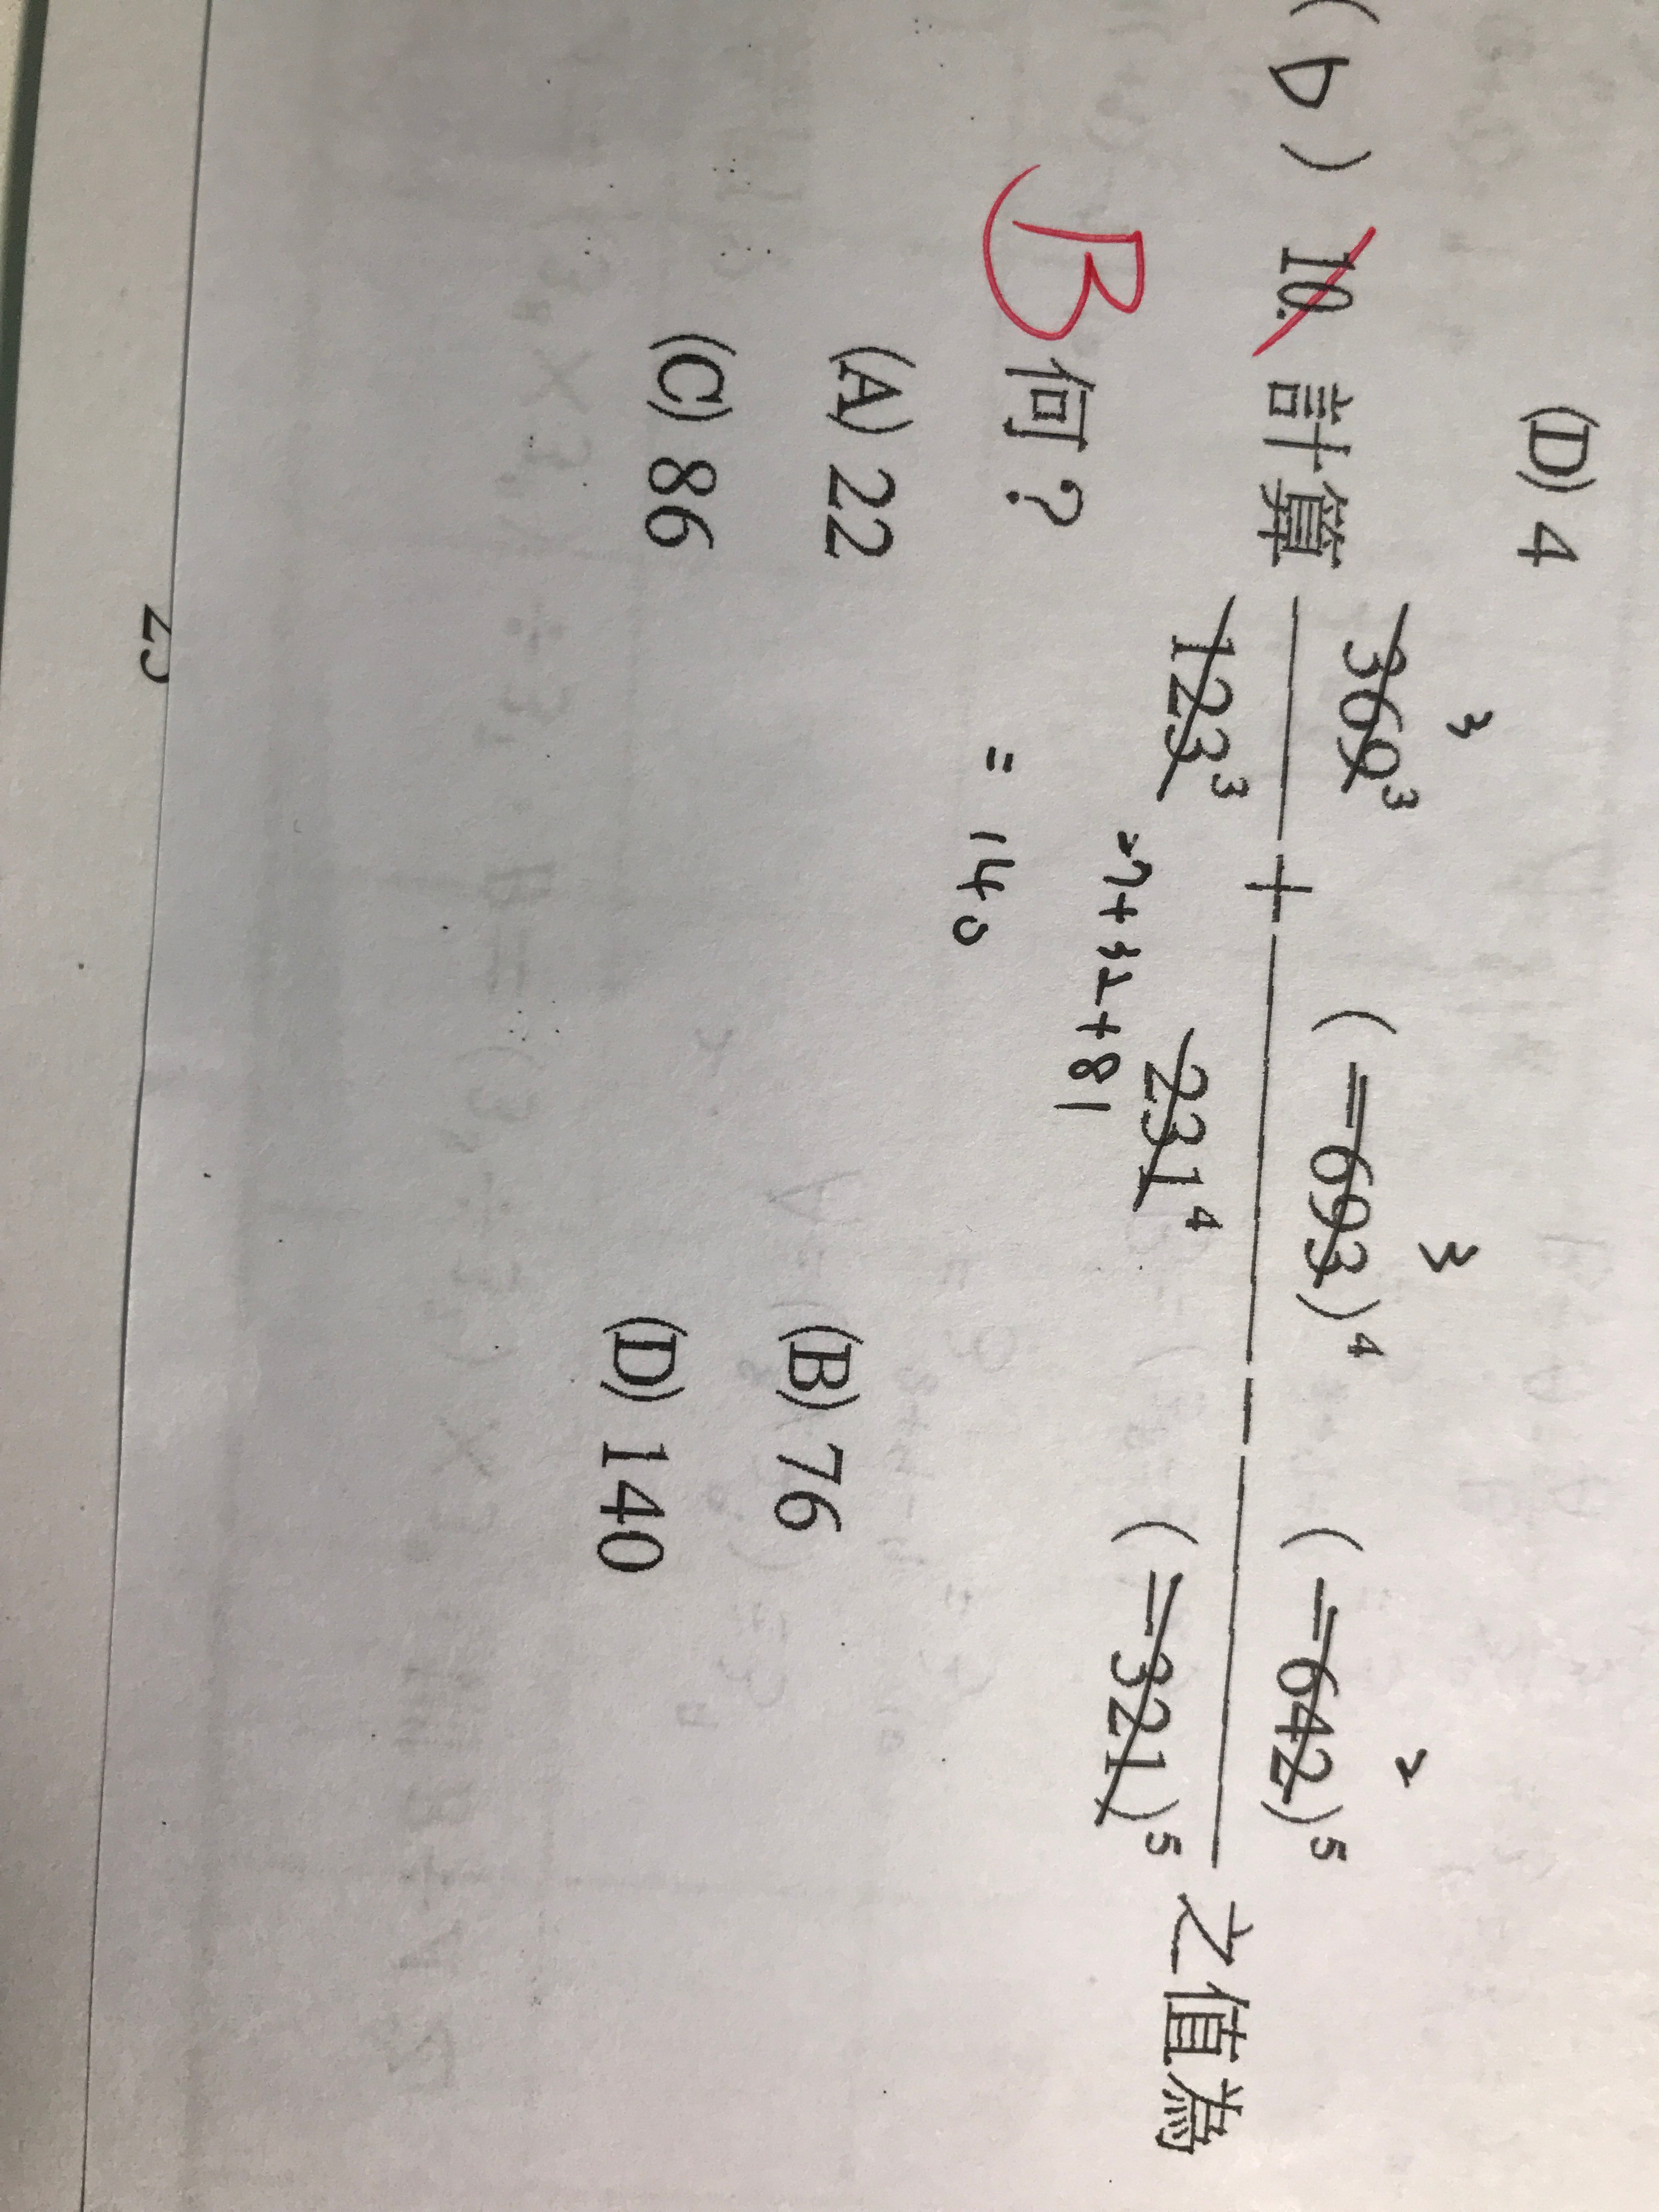 (D) 4
(D) 10. 計算 369³/123³ + (-693)⁴/231⁴ - (-642)⁵/(-321)⁵ 之值為
3 3 2
B 何？
27+32+81
= 140
(A) 22 (B) 76
(C) 86 (D) 140